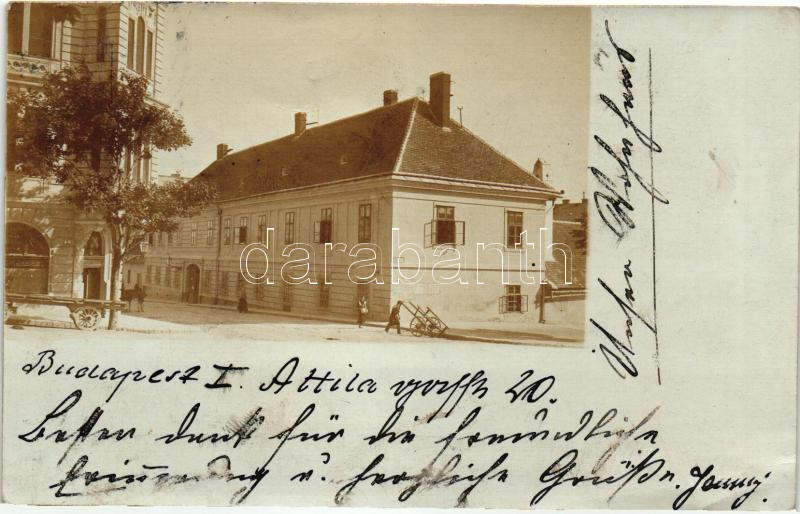 darabanth
Unser Wohnhaus
Budapest I. Attila 20.
Besten Dank für die freundliche
Erinnerung u. herzliche Grüße Jenny.